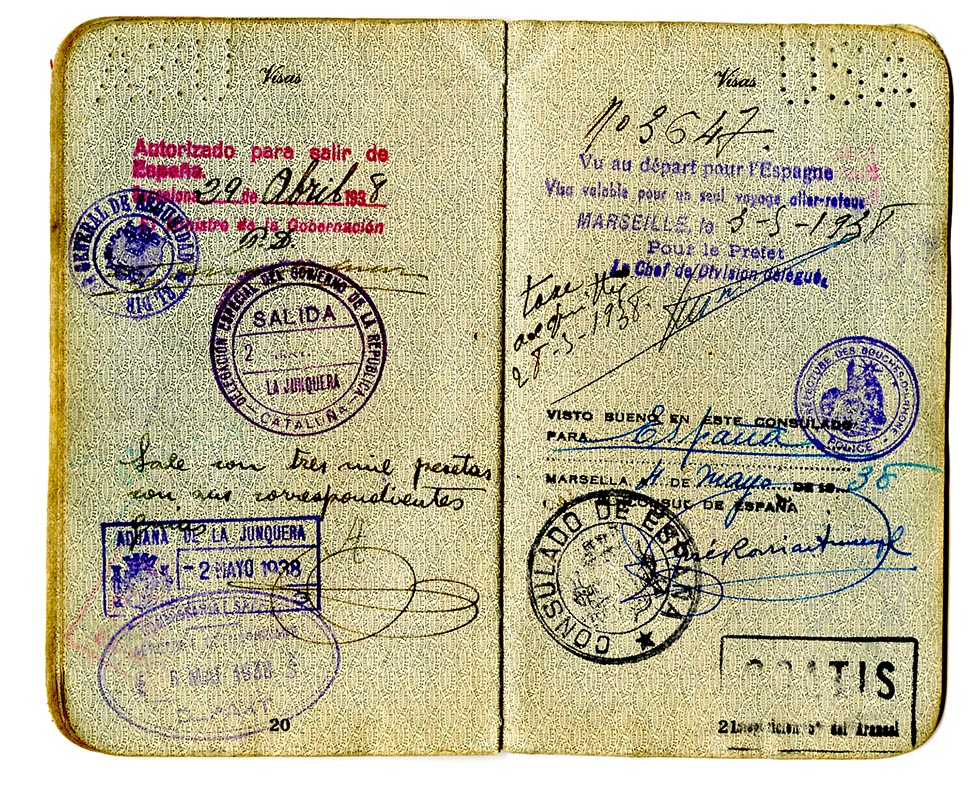 Visas
Autorizado para salir de
España.
Barcelona 29 de Abril 1938
El Ministro de la Gobernación
P.D.
GENERAL DE SEGURIDAD
EL DIR
DELEGACION ESPECIAL DEL GOBIERNO DE LA REPUBLICA
SALIDA
2
LA JUNQUERA
CATALUÑA
Sale con tres mil pesetas
con sus correspondientes
ADUANA DE LA JUNQUERA
-2 MAYO 1938
MAI 1938
20
Visas
USA
No 3647
Vu au départ pour l'Espagne
Visa valable pour un seul voyage aller-retour
MARSEILLE, le 3-5-1938
Pour le Préfet
Le Chef de Division délégué,
taxe
acquittée
28-3-1938
PREFECTURE DES BOUCHES-DU-RHONE
POLICE
VISTO BUENO EN ESTE CONSULADO
PARA España
MARSELLA 4 DE mayo DE 19 38
CONSUL DE ESPAÑA
CONSULADO DE ESPAÑA
GRATIS
21 del Arancel